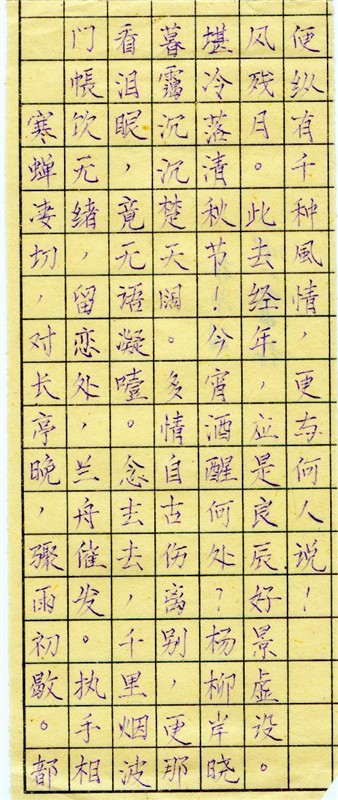 寒蝉凄切，对长亭晚，骤雨初歇。都
门帳饮无绪，留恋处，兰舟催发。执手相
看泪眼，竟无语凝噎。念去去，千里烟波
暮霭沉沉楚天阔。多情自古伤离别，更那
堪冷落清秋节！今宵酒醒何处？杨柳岸晓
风残月。此去经年，应是良辰好景虚设。
便纵有千种風情，更与何人说！